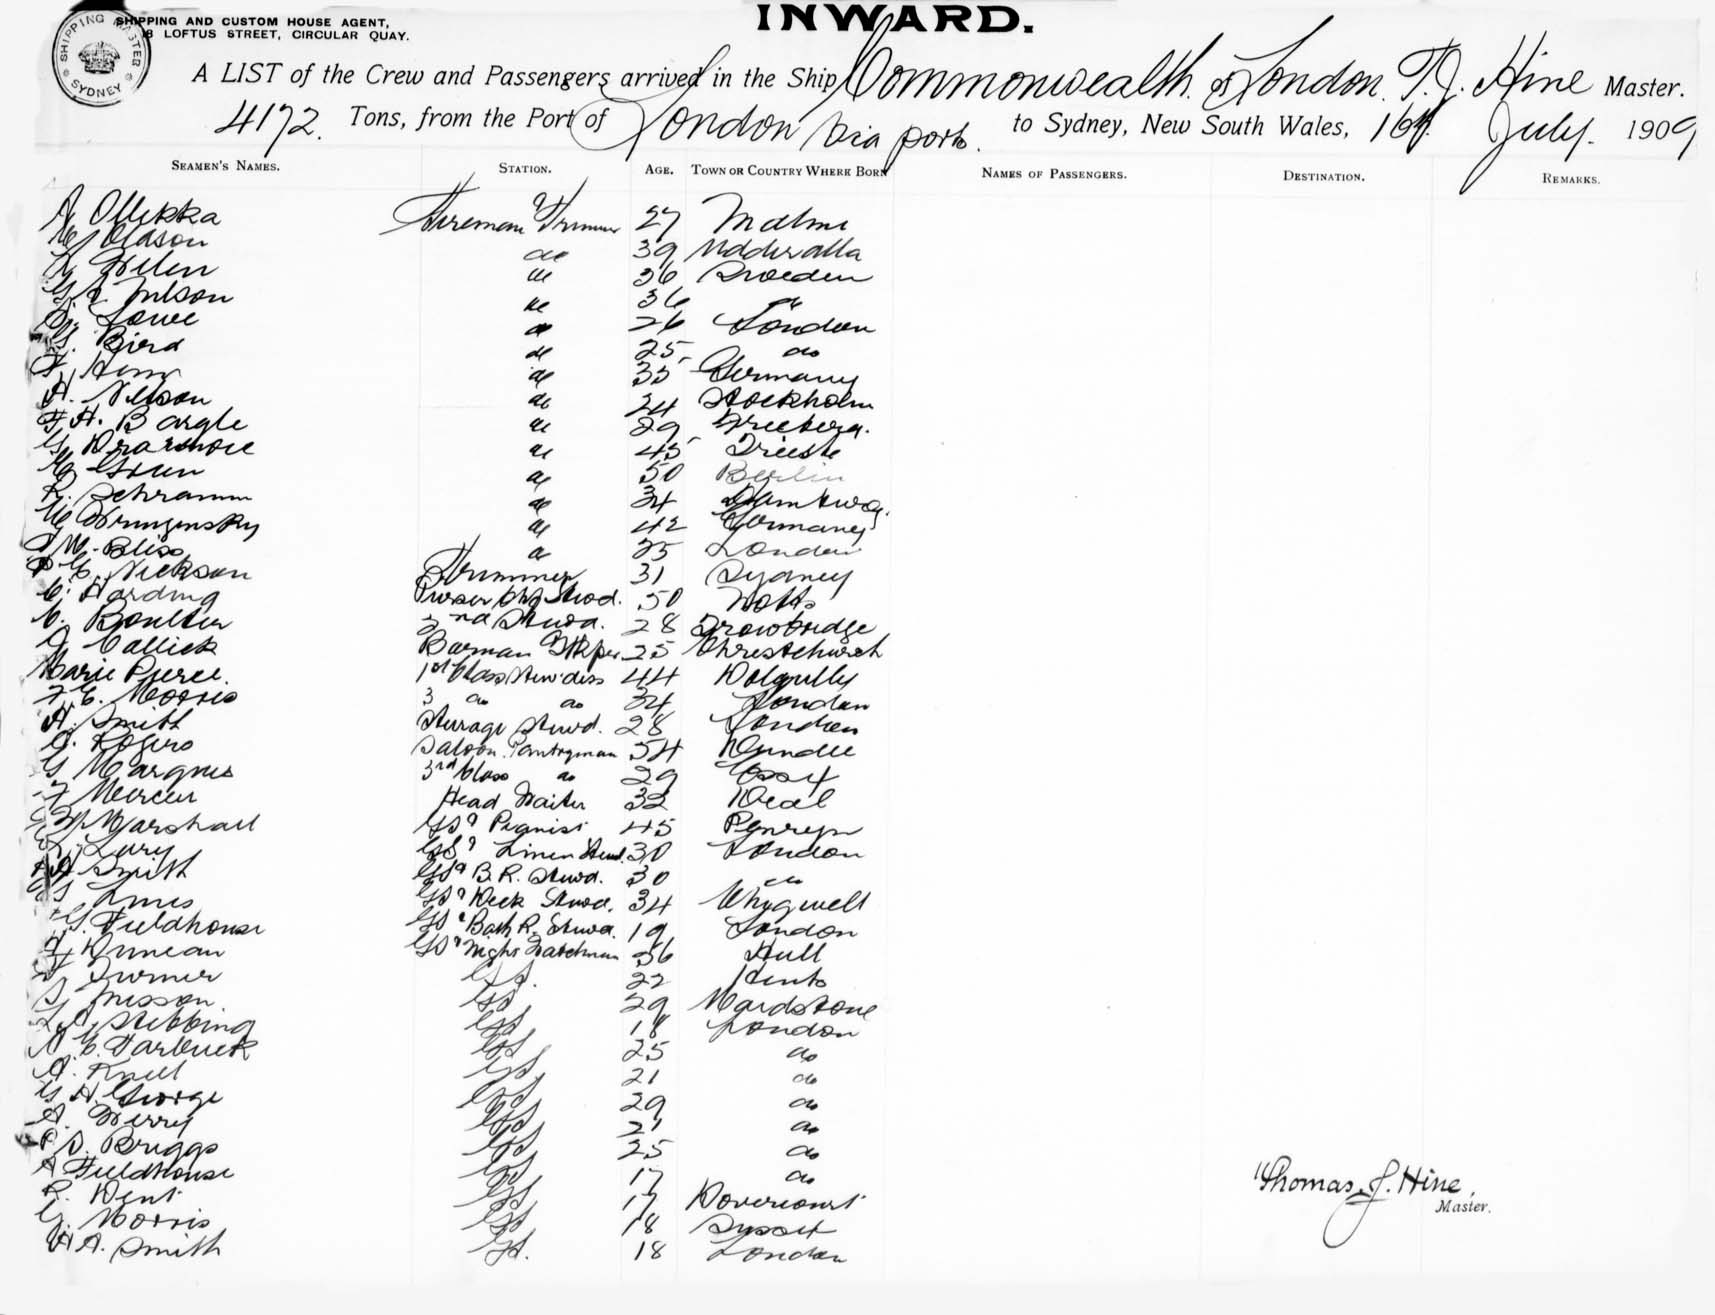 SHIPPING MASTER SYDNEY
SHIPPING AND CUSTOM HOUSE AGENT,
8 LOFTUS STREET, CIRCULAR QUAY.
INWARD.
A LIST of the Crew and Passengers arrived in the Ship Commonwealth of London. T. J. Hine Master.
4172. Tons, from the Port of London via ports. to Sydney, New South Wales, 16th July. 1909
SEAMEN'S NAMES. STATION. AGE. TOWN OR COUNTRY WHERE BORN NAMES OF PASSENGERS. DESTINATION. REMARKS.
Fireman & Trimmer 27 Malmo
do 39 Uddevalla
Helen do 36 Sweden
do 36 do
Lowe do 26 London
Bird do 25 do
do 35 Germany
H. Nelson do 24 Stockholm
F. H. Bargle do 29
do 45 Trieste
do 50 Berlin
R. Schramm do 34
do 42 Germany
W. Bliss do 25 London
Nickson Trimmer 31 Sydney
C. Harding Purser Chf Stwd. 50 Notts
C. Boulter 2nd Stwd. 28 Trowbridge
Callick Barman & Stkpr 25 Christchurch
Marie Pierce. 1st Class Stew'dess 44 Dolgelly
Morris 3 do do 34 London
A. Smith Steerage Stwd. 28 London
Rogers Saloon Pantryman 54 Dundee
G Marquis 3rd Class do 29 Essex
F Mercer Head Waiter 32 Deal
Marshall GS & Pianist 45 Penryn
Lury GS & Linen Stwd. 30 London
Smith GS & B. R. Stwd. 30 do
GS & Deck Stwd. 34
Fieldhouse GS & Bath R. Stwd. 19 London
Duncan GS & Night Watchman 36 Hull
Turner GS. 22 Kent
GS 29 Maidstone
Stebbing GS 18 London
Tarbuck GS 25 do
A. Knell GS 21 do
G H. George GS 29 do
A. GS 21 do
S. Briggs GS 25 do
A Fieldhouse GS 17 do
R. Dent GS 17 Dovercourt
G. Morris GS 18 Sussex
A. Smith GS. 18 London
Thomas J. Hine,
Master.